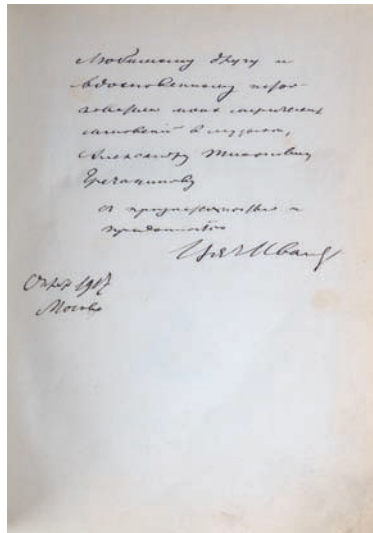 Любимому другу и
вдохновенному
моих лирических
в музыке,
Александру Тихоновичу
Гречанинову
с признательностью и
преданностью
Вяч Иванов
1917
Москва